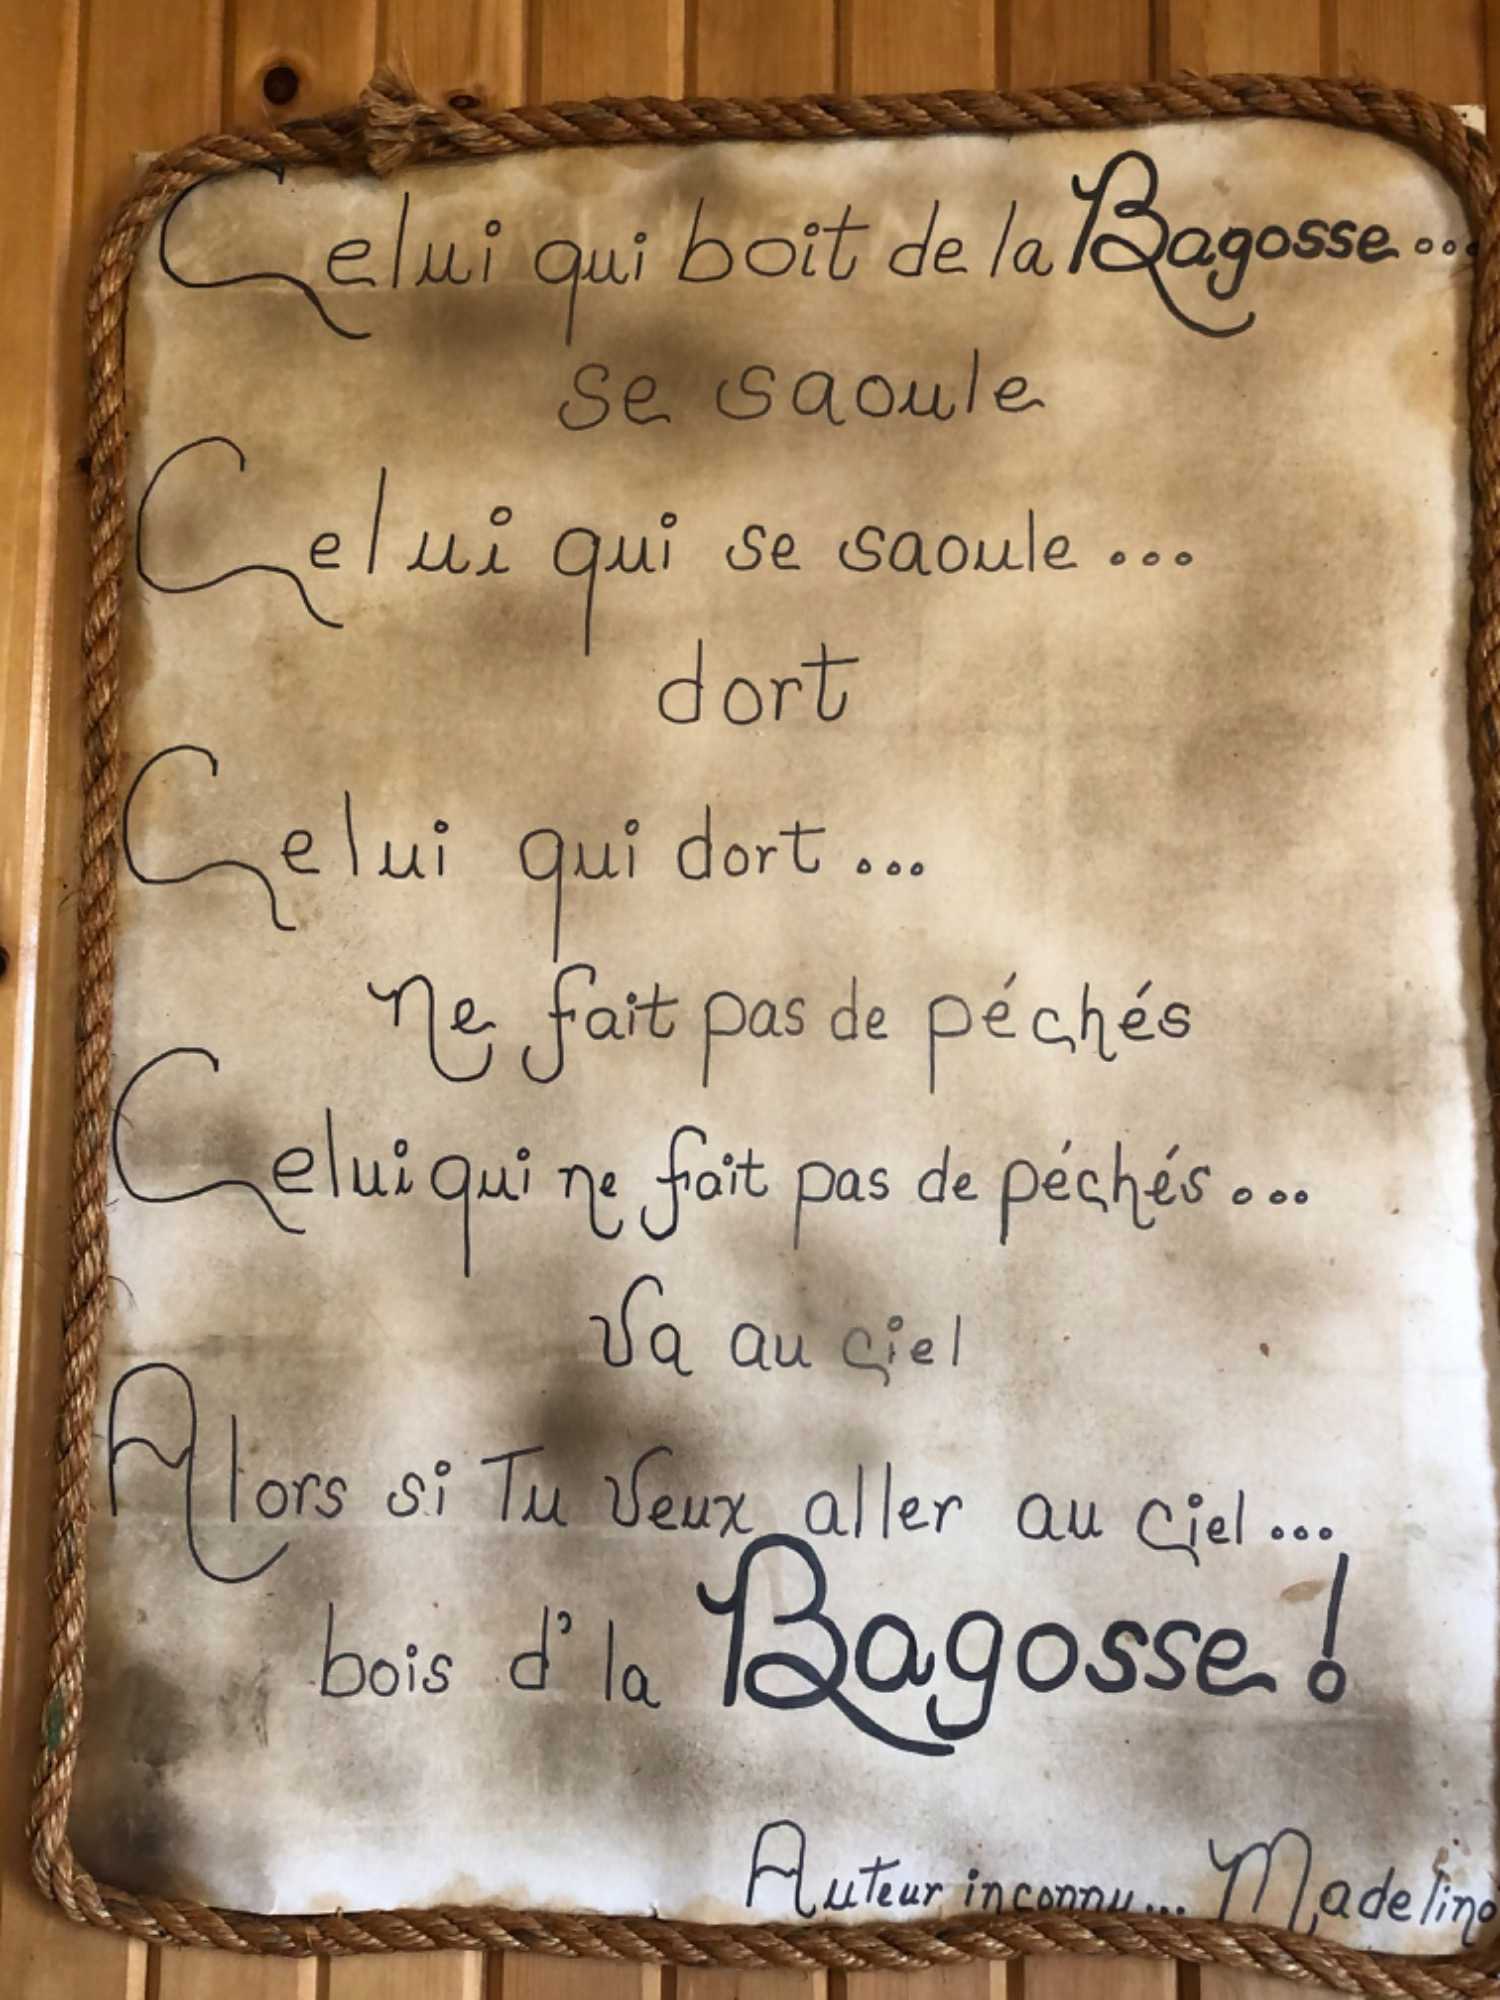 Celui qui boit de la Bagosse...
se saoule
Celui qui se saoule...
dort
Celui qui dort...
ne fait pas de péchés
Celui qui ne fait pas de péchés...
Va au ciel
Alors si Tu Veux aller au ciel...
bois d'la Bagosse!
Auteur inconnu... Madelino